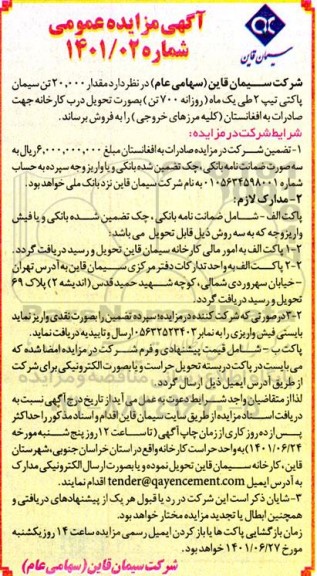 آگهی مزایده عمومی
شماره ۱۴۰۱/۰۲
سیمان قاین
شرکت سیمان قاین (سهامی عام) در نظر دارد مقدار ۲۰,۰۰۰ تن سیمان
پاکتی تیپ ۲ طی یک ماه (روزانه ۷۰۰ تن) بصورت تحویل درب کارخانه جهت
صادرات به افغانستان (کلیه مرزهای خروجی) را به فروش برساند.
شرایط شرکت در مزایده:
۱- تضمین شرکت در مزایده صادرات به افغانستان مبلغ ۶,۰۰۰,۰۰۰,۰۰۰ ریال به
سه صورت ضمانت نامه بانکی، چک تضمین شده بانکی و یا واریز وجه سپرده به حساب
شماره ۰۱۰۵۶۳۴۵۹۸۰۰۱ به نام شرکت سیمان قاین نزد بانک ملی خواهد بود.
۲- مدارک لازم:
پاکت الف - شامل ضمانت نامه بانکی، چک تضمین شده بانکی و یا فیش
واریز وجه که به سه روش ذیل قابل تحویل می باشد:
۲-۱ پاکت الف به امور مالی کارخانه سیمان قاین تحویل و رسید دریافت گردد.
۲-۲ پاکت الف به واحد تدارکات دفتر مرکزی سیمان قاین به آدرس تهران
- خیابان سهروردی شمالی، کوچه شهید حمید قدس (اندیشه ۲) پلاک ۶۹
تحویل و رسید دریافت گردد.
۲-۳ درصورتی که شرکت کننده در مزایده؛ سپرده تضمین را بصورت نقدی واریز نماید
بایستی فیش واریزی را به نمابر ۰۵۶۳۲۵۲۳۴۰۳ ارسال و تاییدیه دریافت نماید.
پاکت ب - شامل قیمت پیشنهادی و فرم شرکت در مزایده امضا شده که
می بایست در پاکت در بسته تحویل حراست و یا بصورت الکترونیکی برای شرکت
از طریق آدرس ایمیل ذیل ارسال گردد.
لذا از متقاضیان واجد شرایط دعوت به عمل می آید از تاریخ درج آگهی نسبت به
دریافت اسناد مزایده از طریق سایت سیمان قاین اقدام و اسناد مذکور را حداکثر
پس از ده روز کاری از زمان چاپ آگهی (تا ساعت ۱۲ روز پنج شنبه مورخه
۱۴۰۱/۰۶/۲۴) به واحد حراست کارخانه واقع در استان خراسان جنوبی، شهرستان
قاین، کارخانه سیمان قاین تحویل نموده و یا بصورت ارسال الکترونیکی مدارک
به آدرس ایمیل tender@qayencement.com اقدام نمایند.
۳- شایان ذکر است این شرکت در رد یا قبول هر یک از پیشنهادهای دریافتی و
همچنین ابطال یا تجدید مزایده مختار خواهد بود.
زمان بازگشایی پاکت ها یا باز کردن ایمیل رسمی مزایده ساعت ۱۴ روز یکشنبه
مورخ ۱۴۰۱/۰۶/۲۷ خواهد بود.
شرکت سیمان قاین (سهامی عام)